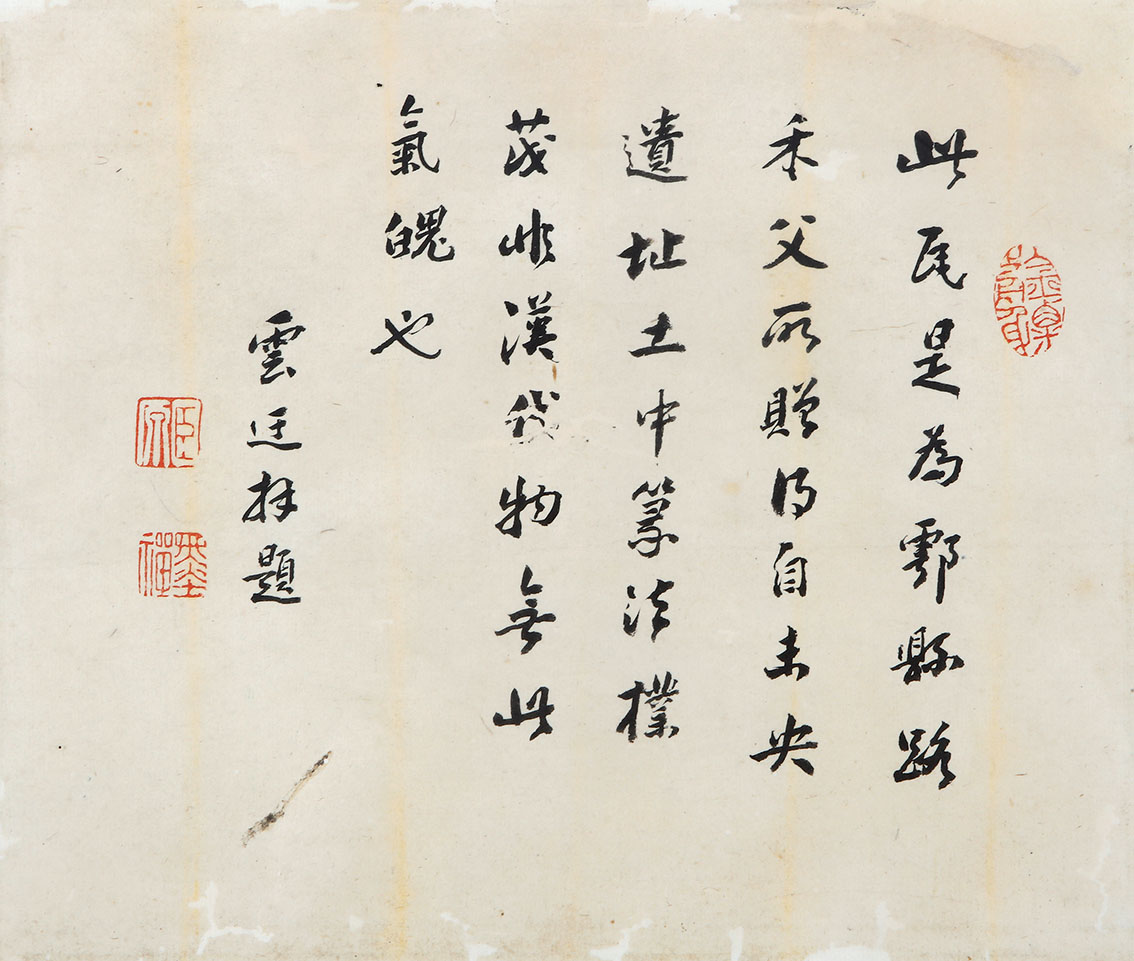 此瓦是為鄠縣路
禾父所贈得自未央
遺址土中篆法樸
茂非漢代物無此
氣魄也
雲廷拜題